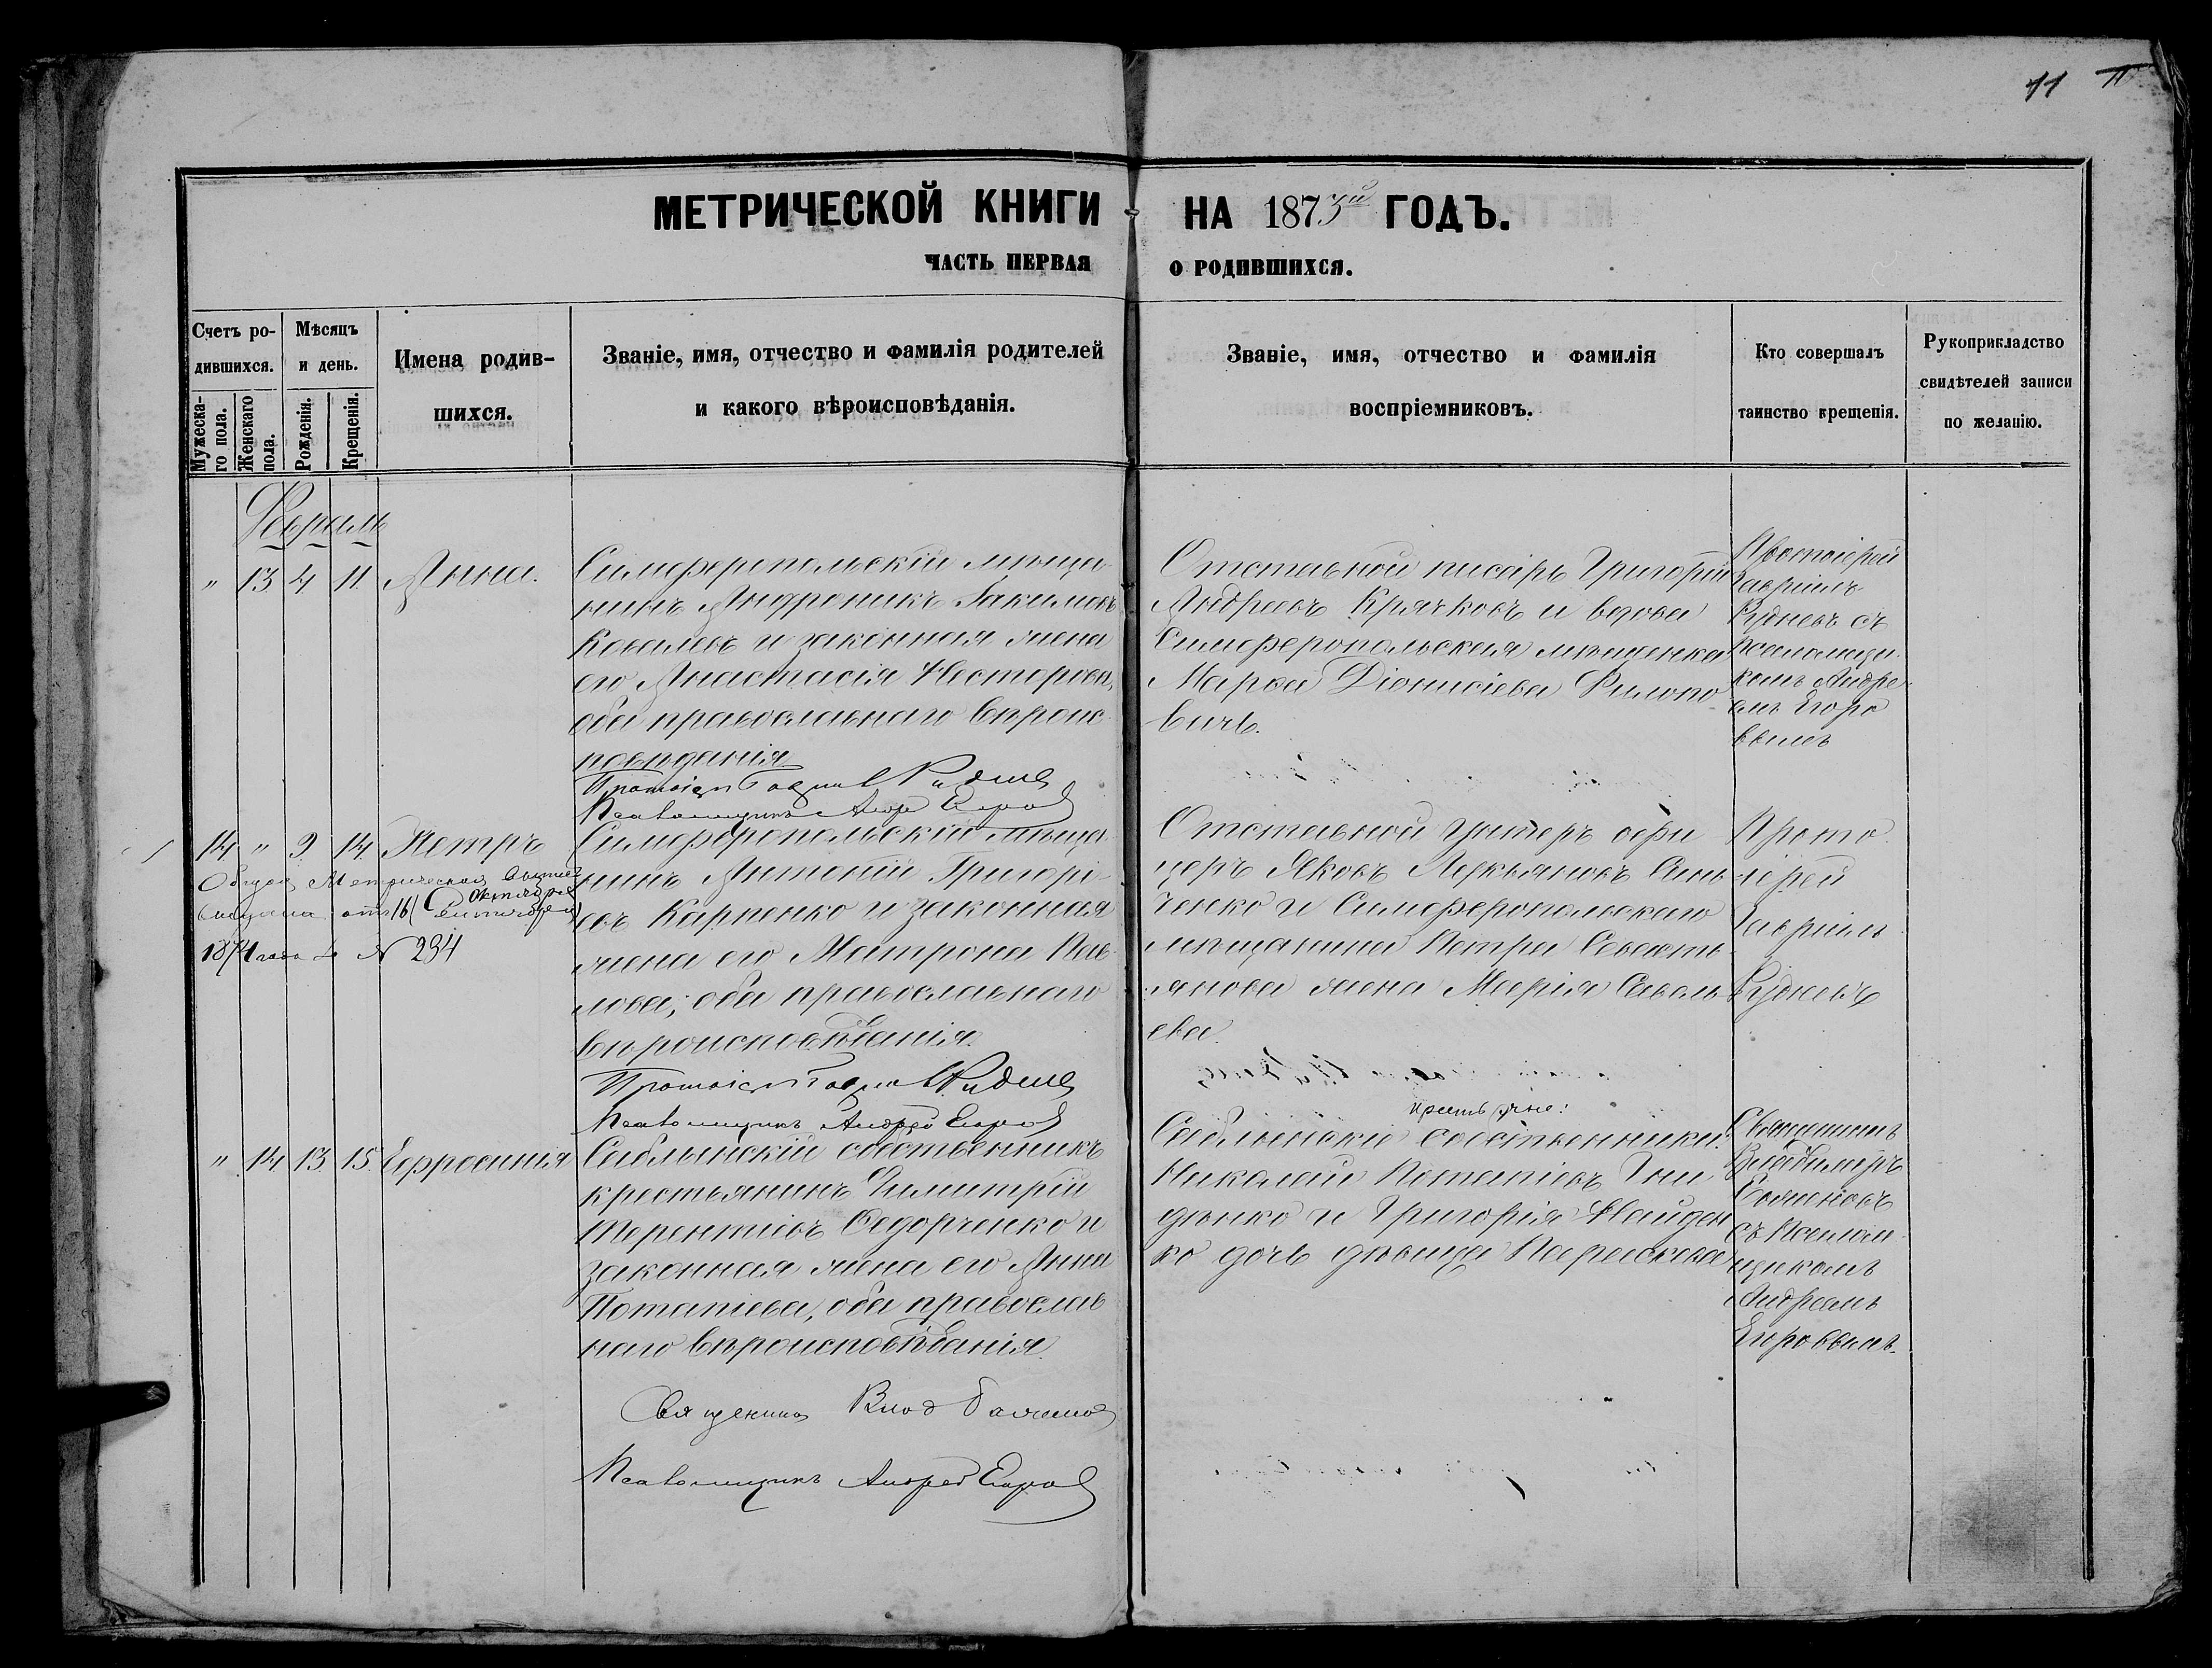 11
МЕТРИЧЕСКОЙ КНИГИ НА 1873й ГОДЪ.
ЧАСТЬ ПЕРВАЯ О РОДИВШИХСЯ.
Счетъ ро-
дившихся.
Мужеска-
го пола.
Женскаго
пола.
Мѣсяцъ
и день.
Рожденія.
Крещенія.
Имена родив-
шихся.
Званіе, имя, отчество и фамилія родителей
и какого вѣроисповѣданія.
Званіе, имя, отчество и фамилія
воспріемниковъ.
Кто совершалъ
таинство крещенія.
Рукоприкладство
свидѣтелей записи
по желанію.
Февраль
" 13 4 11. Анна.
Симферопольскій мѣща-
нинъ Андроникъ Іакимовъ
Ковалевъ и законная жена
его Анастасія Несторова,
оба православнаго вѣроис-
повѣданія
Протоіерей Гавріилъ Рудневъ
Псаломщикъ Андрей Егоровъ
Отставной писарь Григорій
Андреевъ Крячковъ и вдова
Симферопольская мѣщанка
Марѳа Діонисіева Филипо-
вичъ.
Протоіерей
Гавріилъ
Рудневъ съ
псаломщи-
комъ Андре-
емъ Егоро-
вымъ
14 " 9 14 Петръ
Метрической
отъ 16 Октября
Сентября
1874 года № 234
Симферопольскій мѣща-
нинъ Антоній Григорі-
евъ Карпенко и законная
жена его Матрона Пав-
лова, оба православнаго
вѣроисповѣданія.
Протоіерей Гавріилъ Рудневъ
Псаломщикъ Андрей Егоровъ
Отставной унтеръ офи-
церъ Яковъ Лукьяновъ Синь-
ченко и Симферопольскаго
мѣщанина Петра Севасть-
янова жена Марія Савель-
ева.
Прото-
іерей
Гавріилъ
Рудневъ
" 14 13 15. Евфросинія
Саблынскій собственникъ
крестьянинъ Димитрій
Терентіевъ Сидорченко и
законная жена его Анна
Потапіева, оба православ-
наго вѣроисповѣданія.
Священникъ Влад Баженовъ
Псаломщикъ Андрей Егоровъ
Саблынскіе собственники:
Николай Потапіевъ
и Григорія Найден-
ко дочь дѣвица Параскева
Священникъ
Владимиръ
Баженовъ
съ Псалом-
щикомъ
Андреемъ
Егоровымъ.